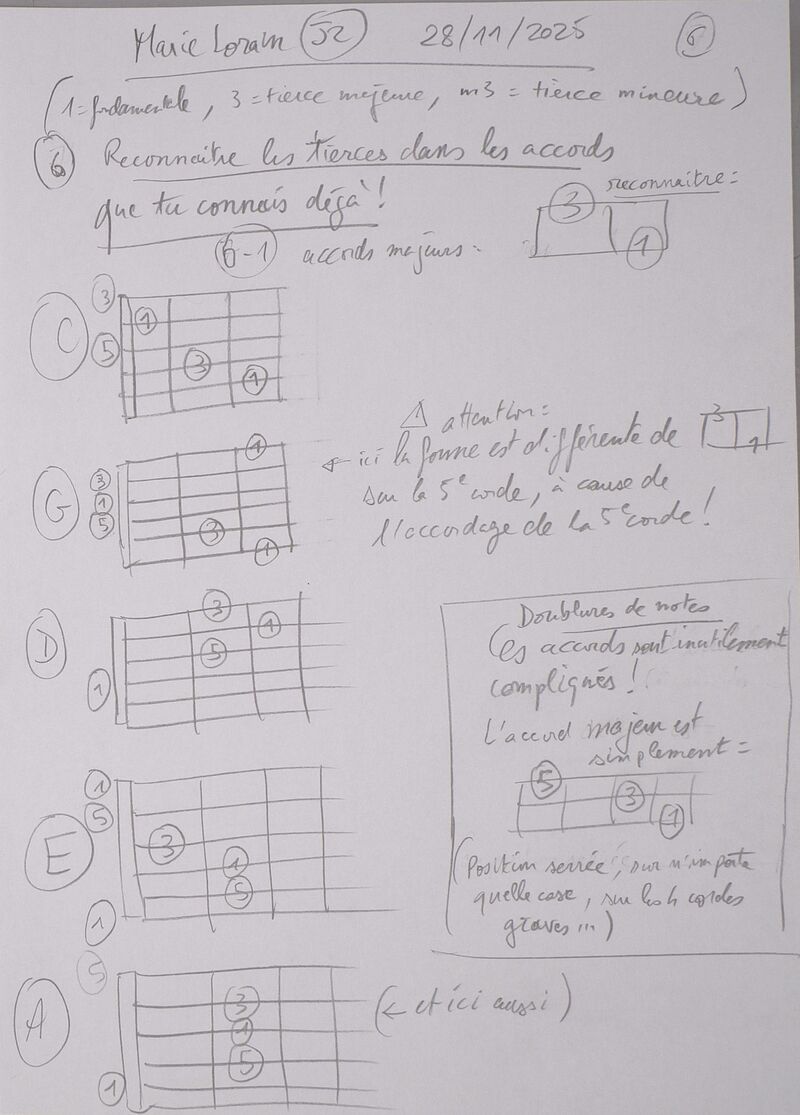 Marie Lorain 52 28/11/2025 6
(1=fondamentale, 3=tierce majeure, m3 = tierce mineure)
6 Reconnaitre les tierces dans les accords
que tu connais déjà !
reconnaitre =
3
1
6-1 accords majeurs =
C
3
5
1
3
1
G
3
1
5
1
3
1
⚠ attention =
← ici la forme est différente de 3 1
sur la 5e corde, à cause de
l'accordage de la 5e corde !
D
1
3
1
5
Doublures de notes
Ces accords sont inutilement
compliqués !
L'accord majeur est
simplement =
5
3
1
(Position serrée, sur n'importe
quelle case, sur les 4 cordes
graves ...)
E
1
5
1
3
1
5
A
5
1
3
1
5
(← et ici aussi)